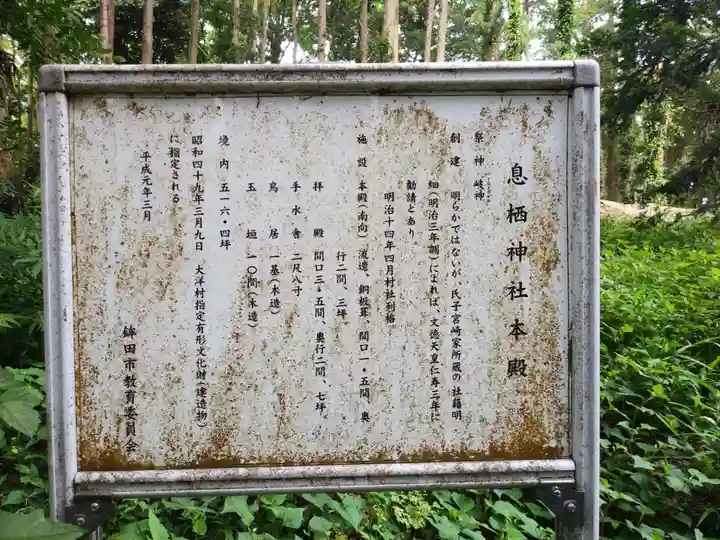 息栖神社本殿
祭神 岐神
創建 明らかではないが、氏子宮崎家所蔵の社籍明
細(明治三年調)によれば、文徳天皇仁寿三年に
勧請とあり
明治十四年四月村社列格
施設 本殿(南向)流造、銅板葺、間口一・五間、奥
行二間、三坪。
拝殿 間口三・五間、奥行二間、七坪。
手水舎 二尺八寸
鳥居 一基(木造)
玉垣 一〇間(木造)
境内 五一六・四坪
昭和四十九年三月九日 大洋村指定有形文化財(建造物)
に指定される
平成元年三月
鉾田市教育委員会